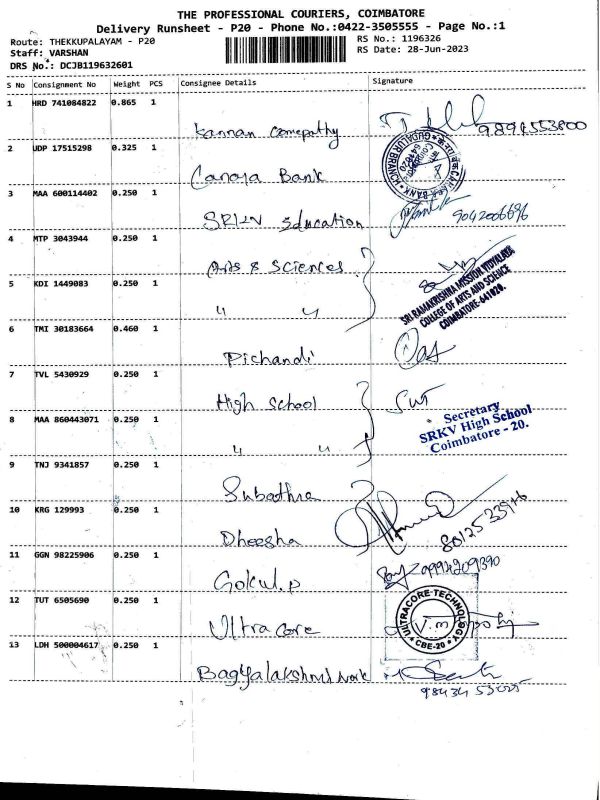 THE PROFESSIONAL COURIERS, COIMBATORE
Delivery Runsheet - P20 - Phone No.:0422-3505555 - Page No.:1
Route: THEKKUPALAYAM - P20
RS No.: 1196326
Staff: VARSHAN
RS Date: 28-Jun-2023
DRS No.: DCJB119632601
S No Consignment No Weight PCS Consignee Details Signature
1 HRD 741084822 0.865 1
Kannan
9894553800
2 UDP 17515298 0.325 1
Canara Bank
GUDALUR BRANCH
3 MAA 600114402 0.250 1
SRKV Education
9042006696
4 MTP 3043944 0.250 1
Arts & Sciences
SRI RAMAKRISHNA MISSION VIDYALAYA
COLLEGE OF ARTS AND SCIENCE
COIMBATORE-641020.
5 KDI 1449083 0.250 1
" "
6 TMI 30183664 0.460 1
Pichandi
7 TVL 5430929 0.250 1
High School
Secretary
SRKV High School
Coimbatore - 20.
8 MAA 860443071 0.250 1
" "
9 TNJ 9341857 0.250 1
Subathra
10 KRG 129993 0.250 1
Dheesha
11 GGN 98225906 0.250 1
Gokul.p
09994209390
12 TUT 6505690 0.250 1
Ultra core
ULTRACORE TECHNOLOGY
CBE-20
13 LDH 500004617 0.250 1
Bagyalakshmi